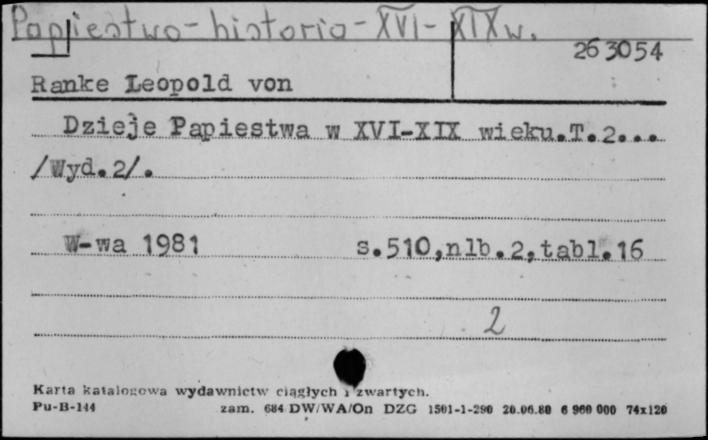 Papiestwo - historia - XVI - XIX w.
263054
Ranke Leopold von
Dzieje Papiestwa w XVI-XIX wieku.T.2...
/Wyd.2/.
W-wa 1981 s.510,nlb.2,tabl.16
2
Karta katalogowa wydawnictw ciągłych i zwartych.
Pu-B-144 zam. 684 DW/WA/On DZG 1501-1-290 20.06.80 6 960 000 74x120